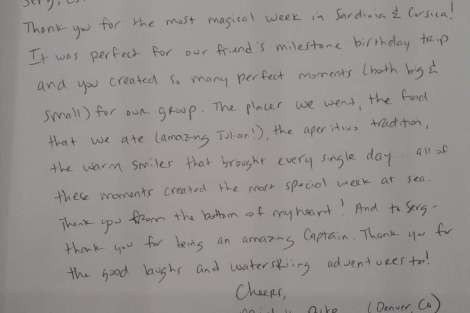 Serg,
Thank you for the most magical week in Sardinia & Corsica!
It was perfect for our friend's milestone birthday trip
and you created so many perfect moments (both big &
small) for our group. The places we went, the food
that we ate (amazing Julian!), the aperitivo tradition,
the warm smiles that brought every single day.. all of
these moments created the most special week at sea.
Thank you from the bottom of my heart! And to Serg-
thank you for being an amazing Captain. Thank you for
the good laughs and waterskiing adventures to!
Cheers,
(Denver, Co)